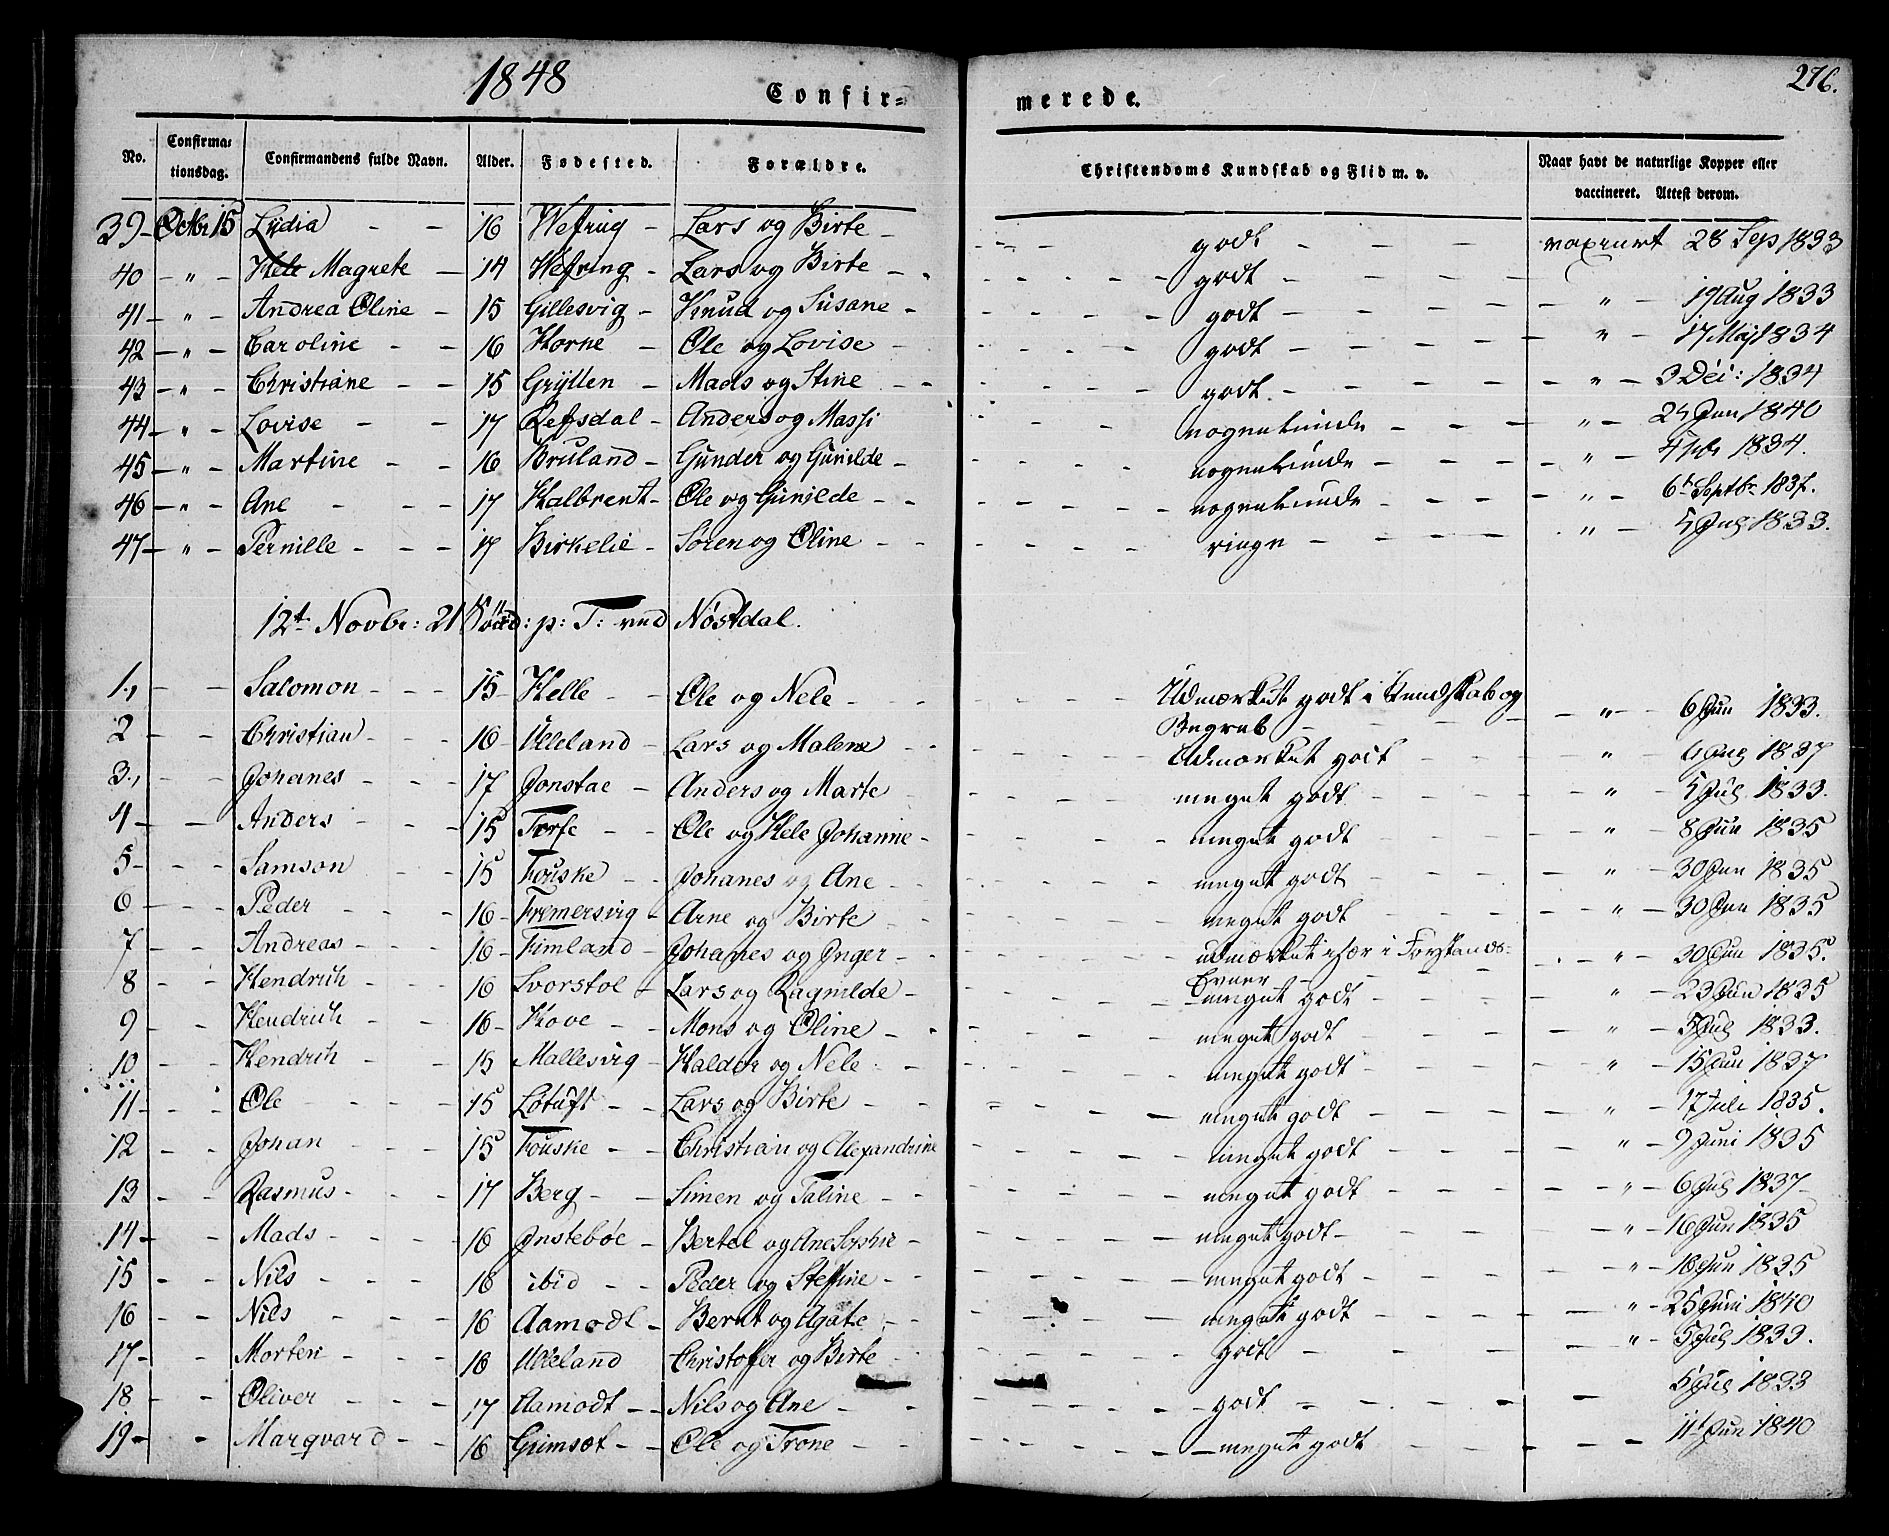 1848
Confir=
merede.
276.
No.
Confirma=
tionsdag.
Confirmandens fulde Navn.
Alder.
Fødested.
Forældre.
Christendoms Kundskab og Flid m. v.
Naar havt de naturlige Kopper eller
vaccineret. Attest derom.
39 - Octbr 15 Lydia - - 16 Wefring - Lars og Birte - godt - - - 28 Sep 1833
40 - " - Hele Magrete - 14 Wefring - Lars og Birte - - godt - - -
41 - " - Andrea Oline - 15 Gillesvig - Knud og Susane - godt - - - " - 19 Aug 1833
42 - " - Caroline - - 16 Horne - Ole og Lovise - godt - - - " - 17 Maj 1834
43 - " - Christiane - - 15 Gryllen - Mads og Stine - - godt - - - " - 3 Dec: 1834
44 - " - Lovise - - 17 Refsdal - Anders og Massi nogenlunde - - - " - Jun 1840
45 - " - Martine - - 16 Bruland - Gunder og Gunilde - nogenlunde - - - " - 1834.
46 - " - Ane - - - 17 Kalbrent - Ole og Gunilde - - nogenlunde - - - " - 6t Septbr 1837.
47 - " - Pernille - - - 17 Birkelie - Søren og Oline - - ringe - - - " - 5 Jul 1833.
12t Novbr: 21 Sönd: p: T: ved Nøstdal.
1., - - Salomon - - - 15 - Helle - - Ole og Nele - - - Udmærket godt i Kundskab og " - 6 Jun 1833.
Begreb - - -
2 - - Christian - - - 16 - Ulleland - Lars og Malene - - Udmærket godt - - - " 1837
3., - - Johanes - - - 17 Jonstae - Anders og Marte - - meget godt - - - " 5 Jul 1833.
4 - - Anders - - - 15 Torfe - - Ole og Hele Johanne - meget godt - - - " 8 Jun 1835
5 - - - Samson - - 15 Fouske - - Johanes og Ane - - meget godt - - - " - 30 Jun 1835
6 - - - Peder - - - 16 - Fremersvig - Arne og Birte - - meget godt - - - " - 30 Jun 1835
7 - - Andreas - - - 16 - Fimland - Johanes og Inger - - udmærket især i Forstands= " - 30 Jun 1835.
Evner
8 - - Hendrich - - 16 Svorstøl - Lars og Ragnilde - meget godt - - - " - 23 Jun 1835
9 - - Hendrich - - 16 - Hove - - Mons og Oline - - meget godt - - - " - 5 Jul 1833.
10 - - Hendrich - - 15 Mallesvig - Halder og Nele - meget godt - - - " - 15 Jun 1837
11 - - - Ole - - - 15 Løtuft - - Lars og Birte - - meget godt - - - " - 17 Juli 1835.
12 - - Johan - - - 15 Fouske - Christian og Alexandrine meget godt - - - " - 9 Juni 1835
13 - - Rasmus - - - 17 Berg - - Simen og Taline - - meget godt - - - " - 6 Jul 1837
14 - - Mads - - - 16 Instebøe - Bertel og Ane Sophie - meget godt - - - " - 16 Jun 1835
15 - - Nils - - - 16 ibid - - Peder og Steffine - - meget godt - - - " - 18 Jun 1835
16 - - Nils - - - 16 Aamodt - Bernt og Agate - - meget godt - - - " - 25 Juni 1840
17 - - Morten - - - 16 Ulleland Christofer og Birte - godt - - - " - 5 Jul 1833.
18 - - Oliver - - - 17 Aamodt - - Nils og Ane - - godt - - - 5 Jul 1833
19 - - Marqvard - - 16 Grimset - - Ole og Trone - - meget godt - - - 11t Jun 1840